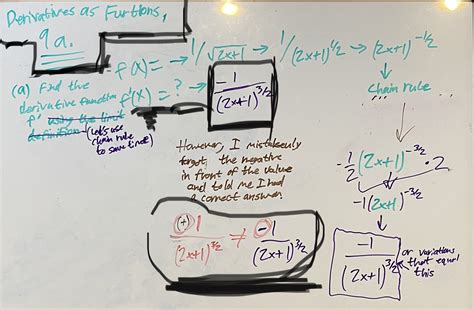 Derivatives as Functions,
9a.
f(x) = → 1/√2x+1 → 1/(2x+1)^1/2 → (2x+1)^-1/2
(a) Find the
derivative function
f' using the limit
definition
(Let's use
chain rule
to save time)
f'(x) = ?
1/(2x+1)^3/2
Chain rule
However, I mistakenly
forgot the negative
in front of the value
and told me I had
a correct answer.
-1/2(2x+1)^-3/2 · 2
-1(2x+1)^-3/2
(+)1/(2x+1)^3/2 ≠ -1/(2x+1)^3/2
-1/(2x+1)^3/2
or variations
that equal
this